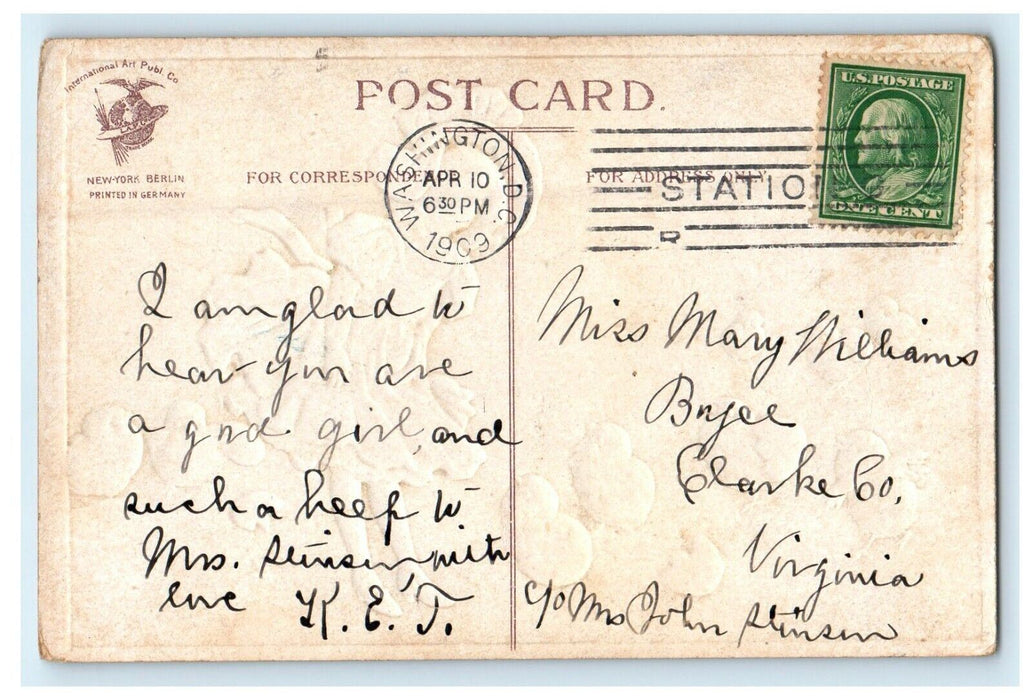 International Art Publ. Co
NEW-YORK BERLIN
PRINTED IN GERMANY
POST CARD.
FOR CORRESPONDE
FOR ADDRESS ONLY.
WASHINGTON, D.C.
APR 10
6 30 PM
1909
STATIO
U.S. POSTAGE
ONE CENT
I am glad to
hear you are
a good girl, and
such a help to
Mrs. Stinson with
love K. E. T.
Miss Mary Williams
Boyce
Clarke Co,
Virginia
c/o Mrs John Stinson